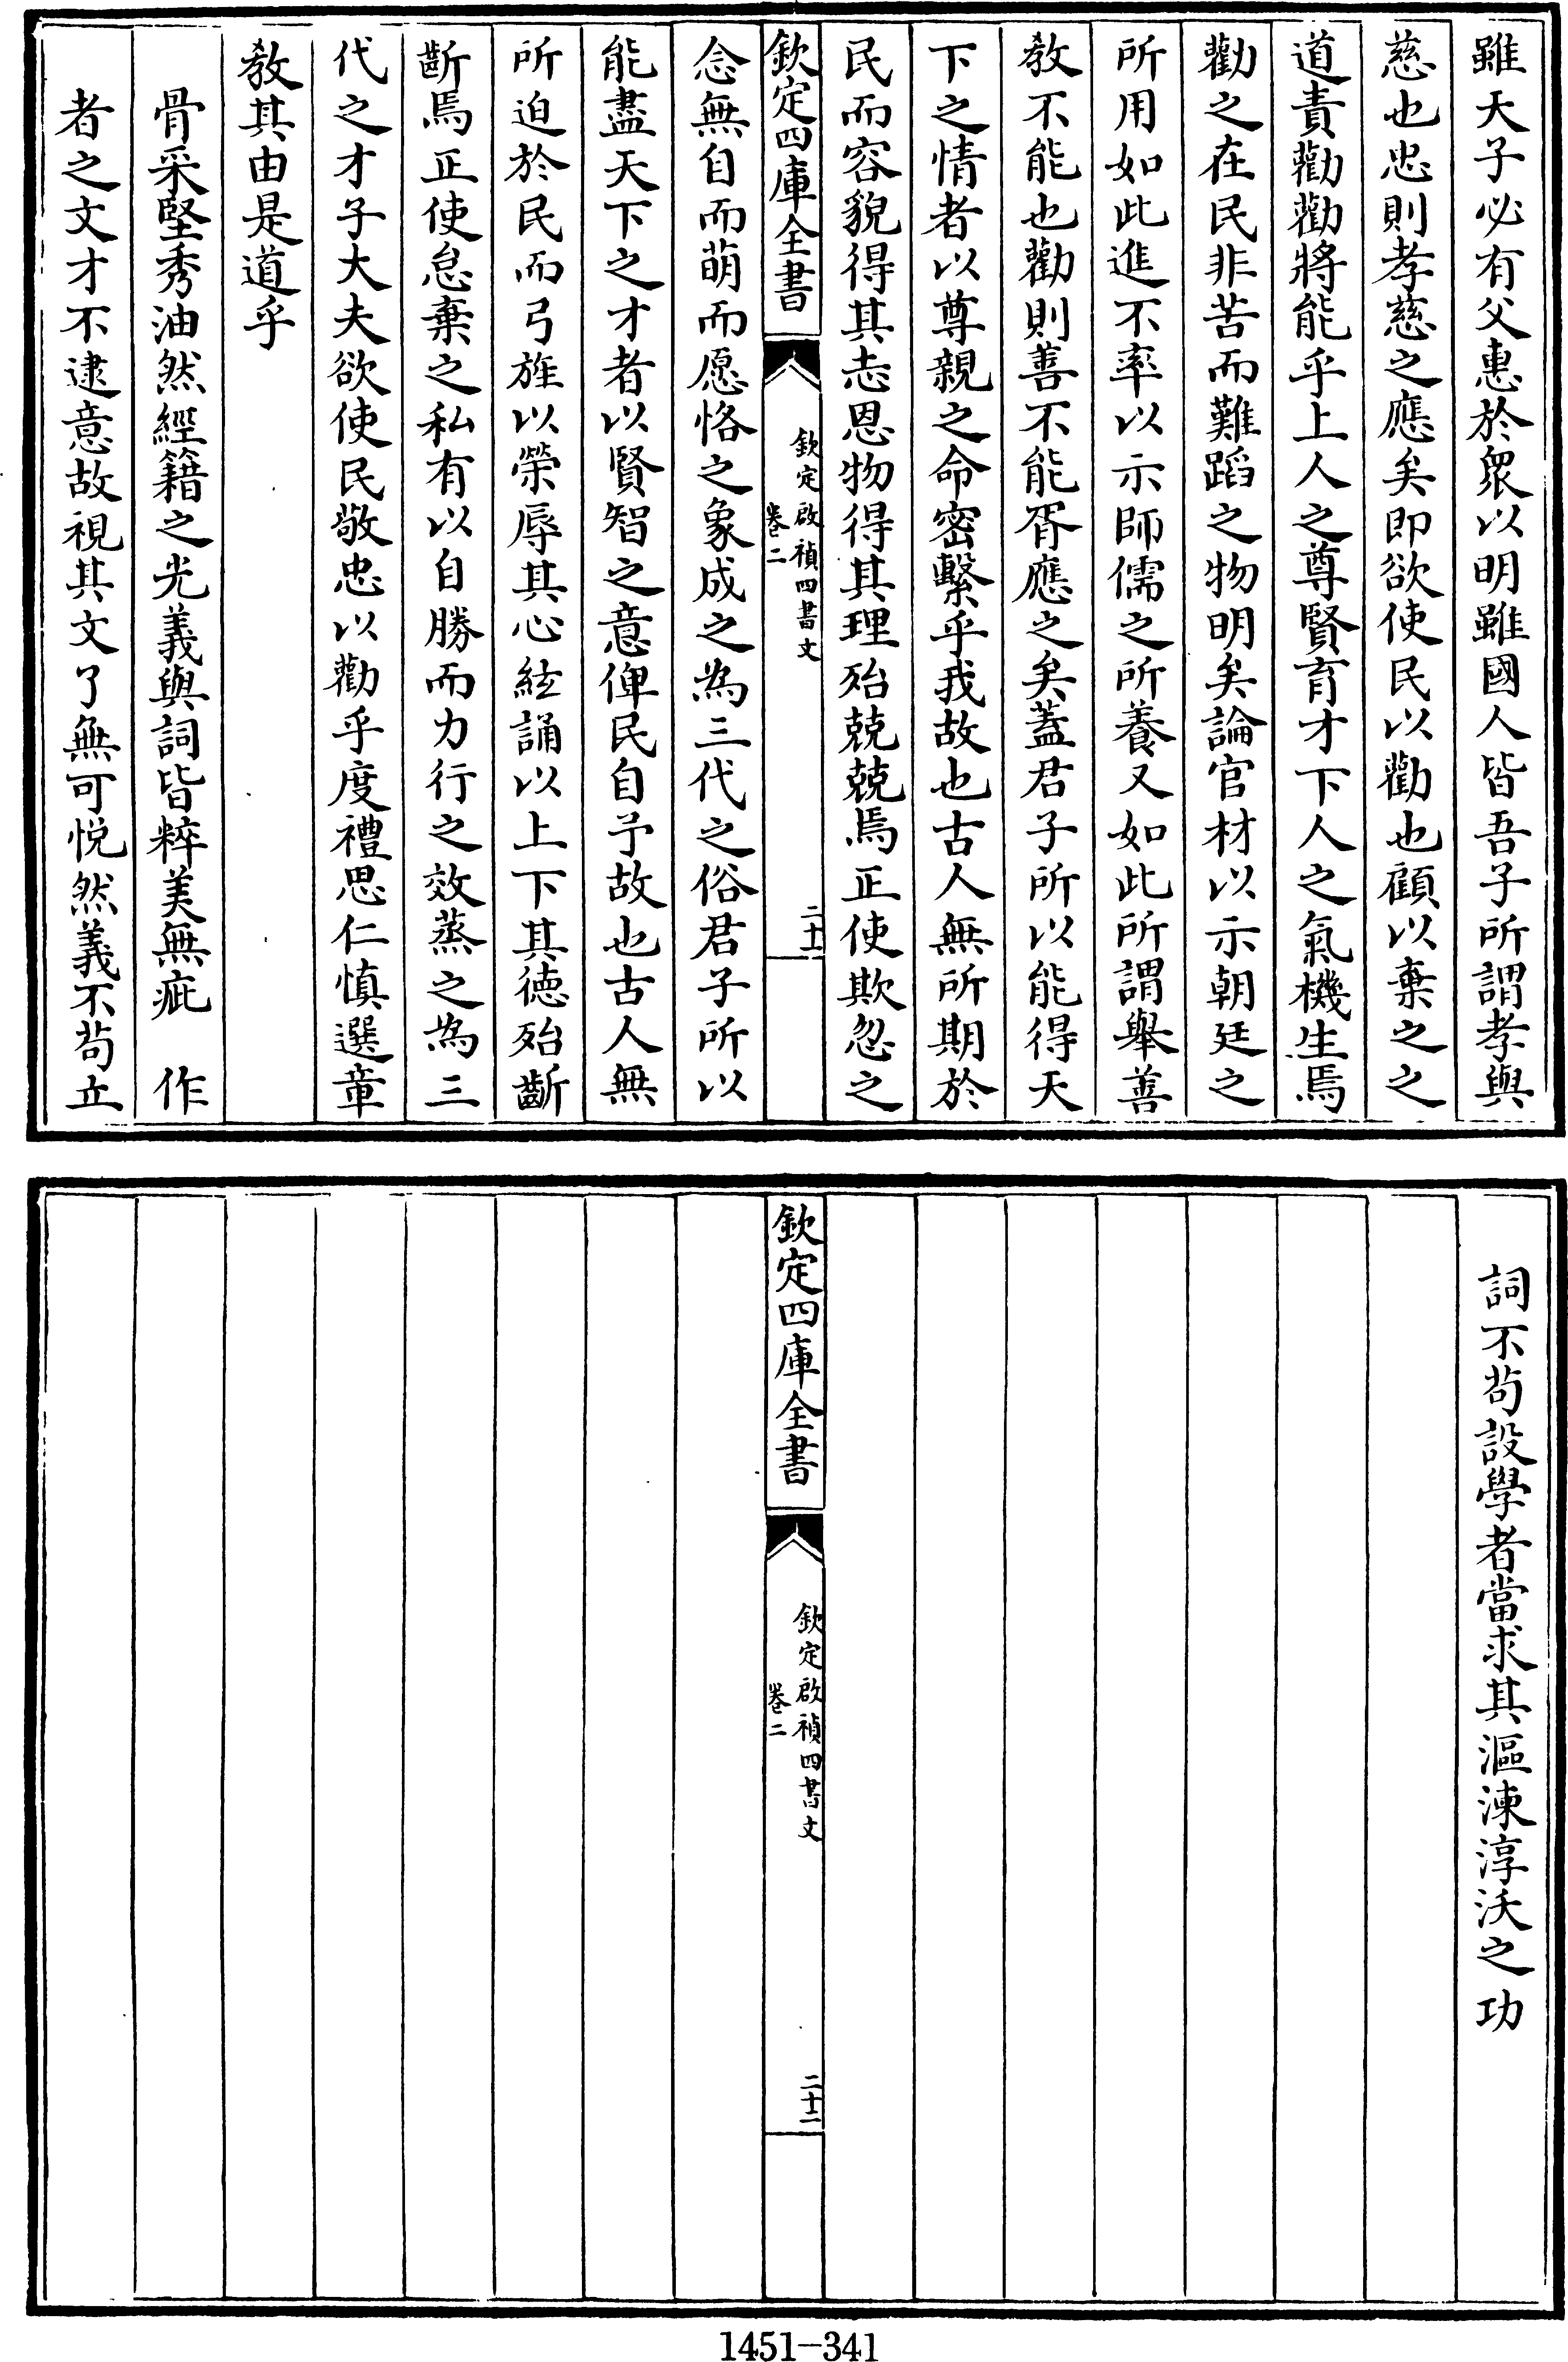 雖天子必有父惠於衆以明雖國人皆吾子所謂孝與
慈也忠則孝慈之應矣即欲使民以勸也顧以棄之之
道責勸勸將能乎上人之尊賢育才下人之氣機生焉
勸之在民非苦而難蹈之物明矣論官材以示朝廷之
所用如此進不率以示師儒之所養又如此所謂舉善
教不能也勸則善不能胥應之矣蓋君子所以能得天
下之情者以尊親之命密繫乎我故也古人無所期於
民而容貌得其志恩物得其理殆兢兢焉正使欺忽之
欽定四庫全書
欽定啟禎四書文
卷二
二十一
念無自而萌而愿恪之象成之為三代之俗君子所以
能盡天下之才者以賢智之意俾民自予故也古人無
所迫於民而弓旌以榮辱其心絃誦以上下其德殆齗
齗焉正使怠棄之私有以自勝而力行之效蒸之為三
代之才子大夫欲使民敬忠以勸乎度禮思仁慎選章
教其由是道乎
骨采堅秀油然經籍之光義與詞皆粹美無疵 作
者之文才不逮意故視其文了無可悅然義不苟立
詞不苟設學者當求其漚涑淳沃之功
欽定四庫全書
欽定啟禎四書文
卷二
二十二
1451-341